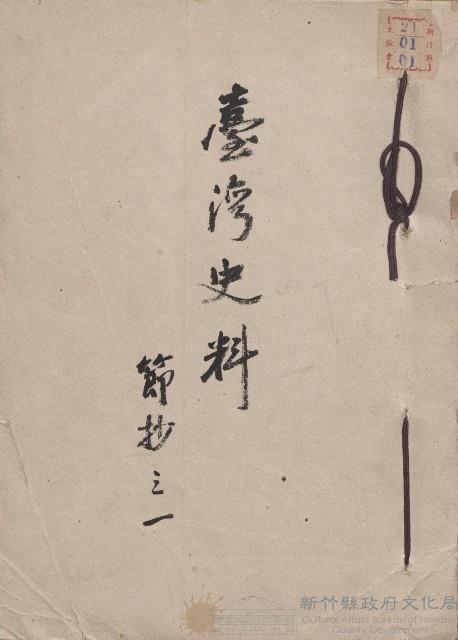 臺灣史料
節抄之一
新竹縣
文獻會
21
01
01
新竹縣政府文化局
Cultural Affairs Bureau of Hsinchu
County Government